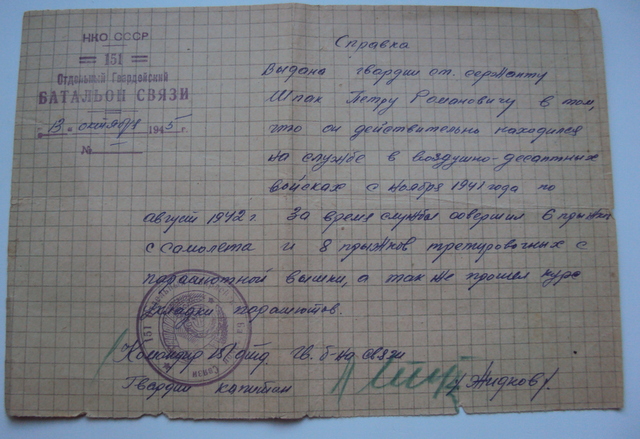 НКО. СССР
151
Отдельный Гвардейский
БАТАЛЬОН СВЯЗИ
"13" октября 1945 г.
№
Справка
Выдана гвардии ст. сержанту
Шпак Петру Романовичу в том,
что он действительно находился
на службе в воздушно-десантных
войсках с ноября 1941 года по
август 1942 г. За время службы совершил 6 прыжк.
с самолета и 8 прыжков тренировочных с
парашютной вышки, а так же прошел курс
укладки парашютов.
Командир 151 отд. Гв. б-на связи
Гвардии капитан /Жиднов/.
151
Связи